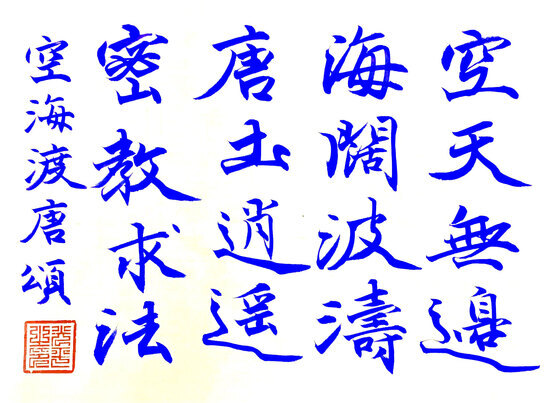 空天無邊
海闊波濤
唐土逍遥
密教求法
空海渡唐頌